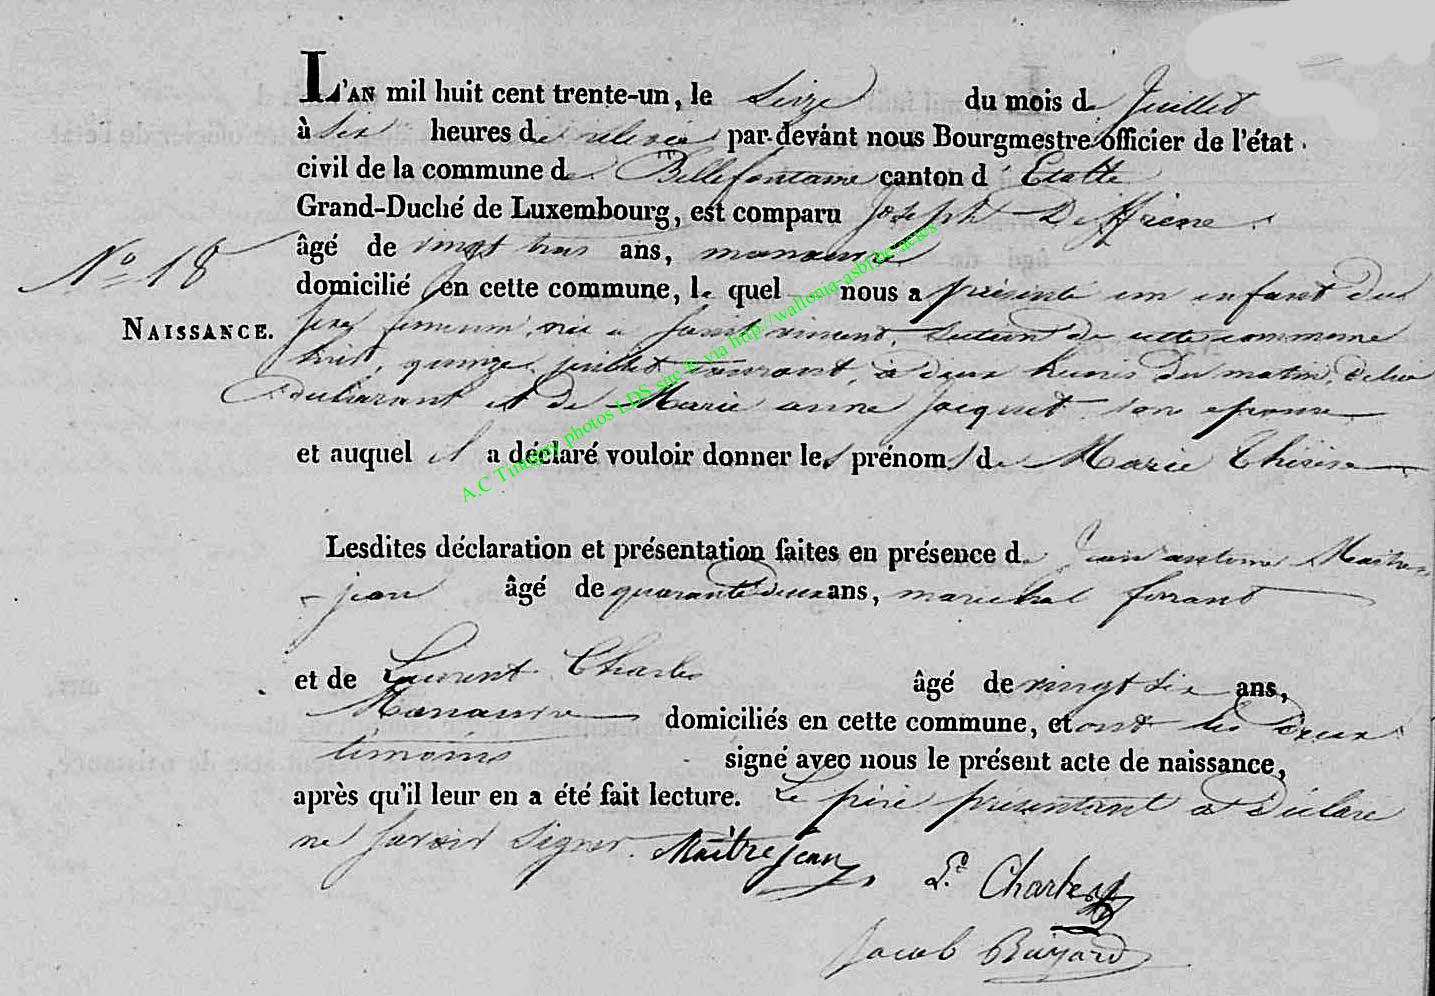 L'AN mil huit cent trente-un, le Seize du mois de Juillet
à Six heures de relevée par-devant nous Bourgmestre officier de l'état
civil de la commune de Bellefontaine canton d'Etalle
Grand-Duché de Luxembourg, est comparu Joseph
âgé de vingt trois ans, manœuvre
N° 18
domicilié en cette commune, le quel nous a présenté un enfant du
NAISSANCE.
Sexe feminin, née a Section de cette commune
quinze juillet courant, à deux heures du matin, de lui
declarant et de Marie anne Jacquet son epouse
et auquel il a déclaré vouloir donner les prénoms de Marie Thérèse
A.C Tintigny photos LDS site © via http://wallonia-asbl.be/actes
Lesdites déclaration et présentation faites en présence de Jean antoine Maitre
-jean âgé de quarante deux ans, marechal ferrant
et de Laurent Charles âgé de vingt six ans,
Manœuvre domiciliés en cette commune, et ont les deux
témoins signé avec nous le présent acte de naissance,
après qu'il leur en a été fait lecture. Le père présentant a déclaré
ne savoir signer. Maître jean
Lt Charles
Jacob